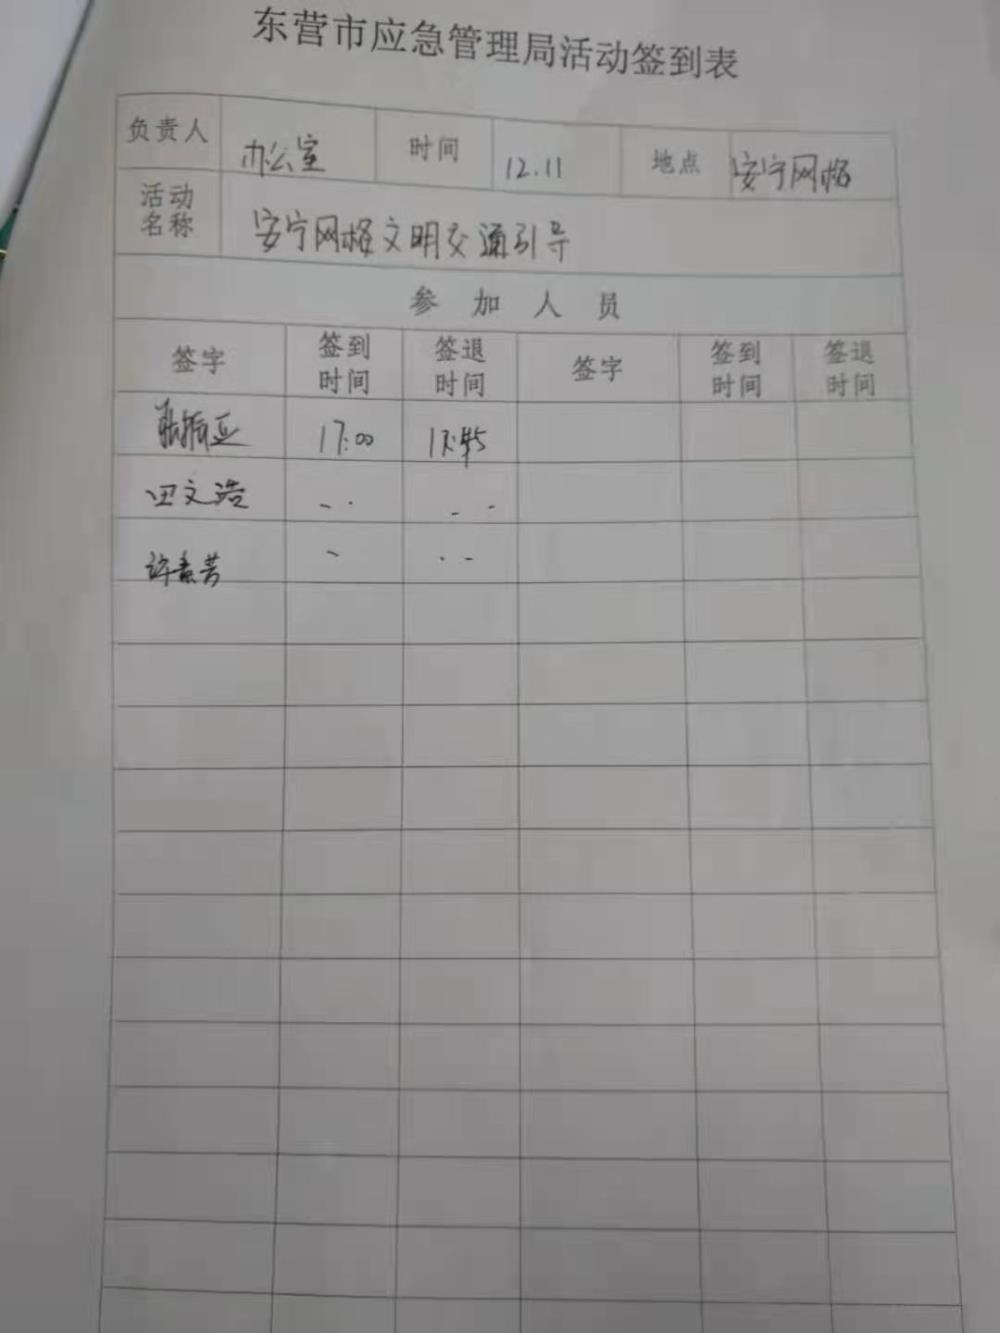 东营市应急管理局活动签到表
负责人 办公室 时间 12.11 地点 安宁网格
活动名称 安宁网格文明交通引导
参加人员
签字 签到时间 签退时间 签字 签到时间 签退时间
张振亚 17:00 17:45
田文浩